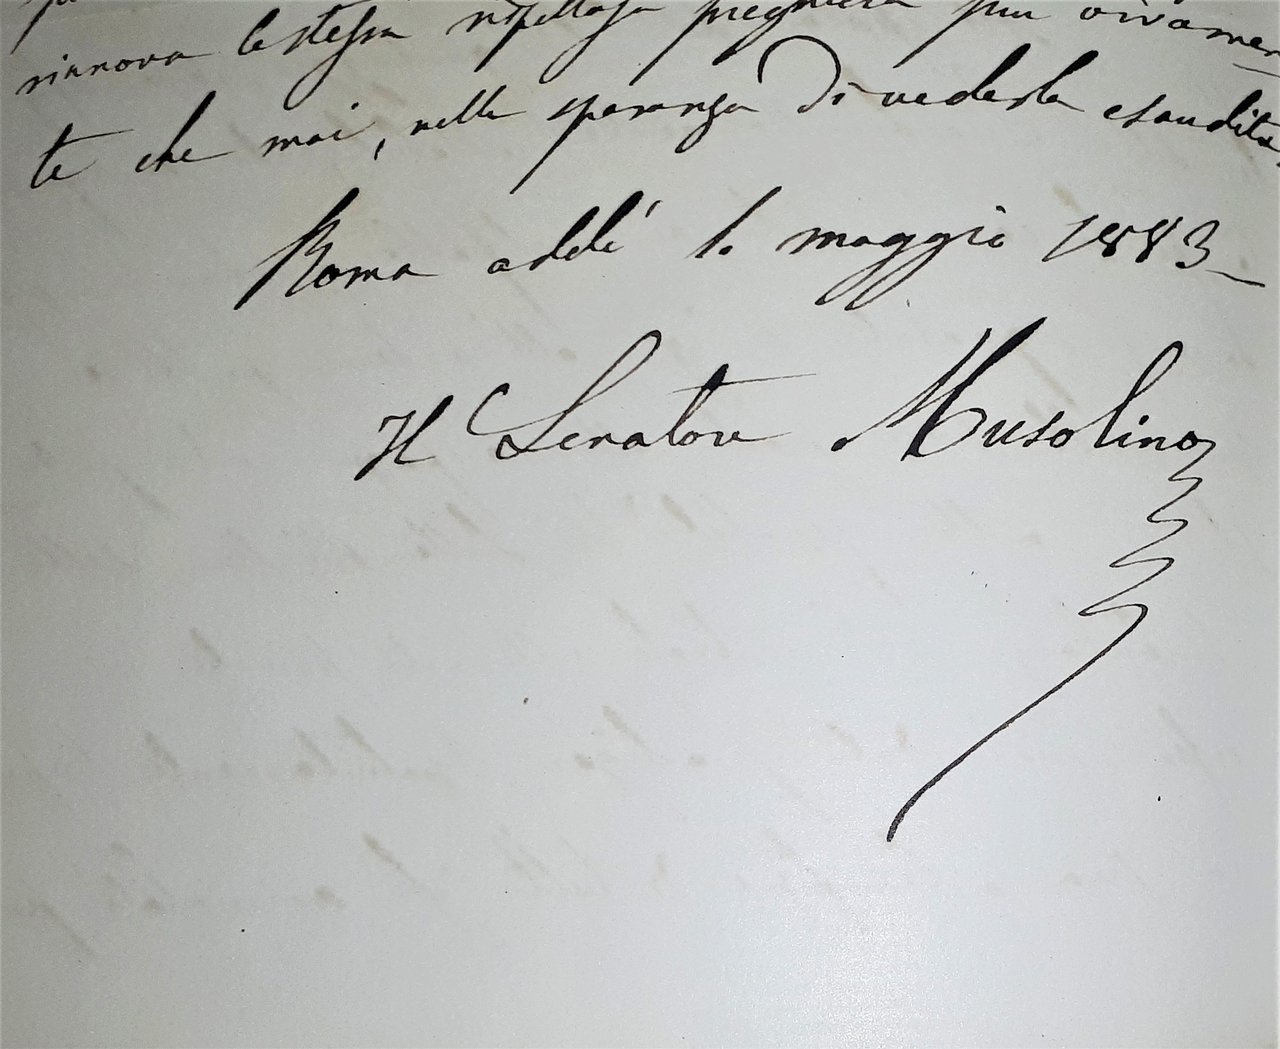 rinnova la stessa rispettosa preghiera più vivamen
te che mai, nella speranza di vederla esaudita.
Roma addì 1. maggio 1883_
Il Senatore Musolino